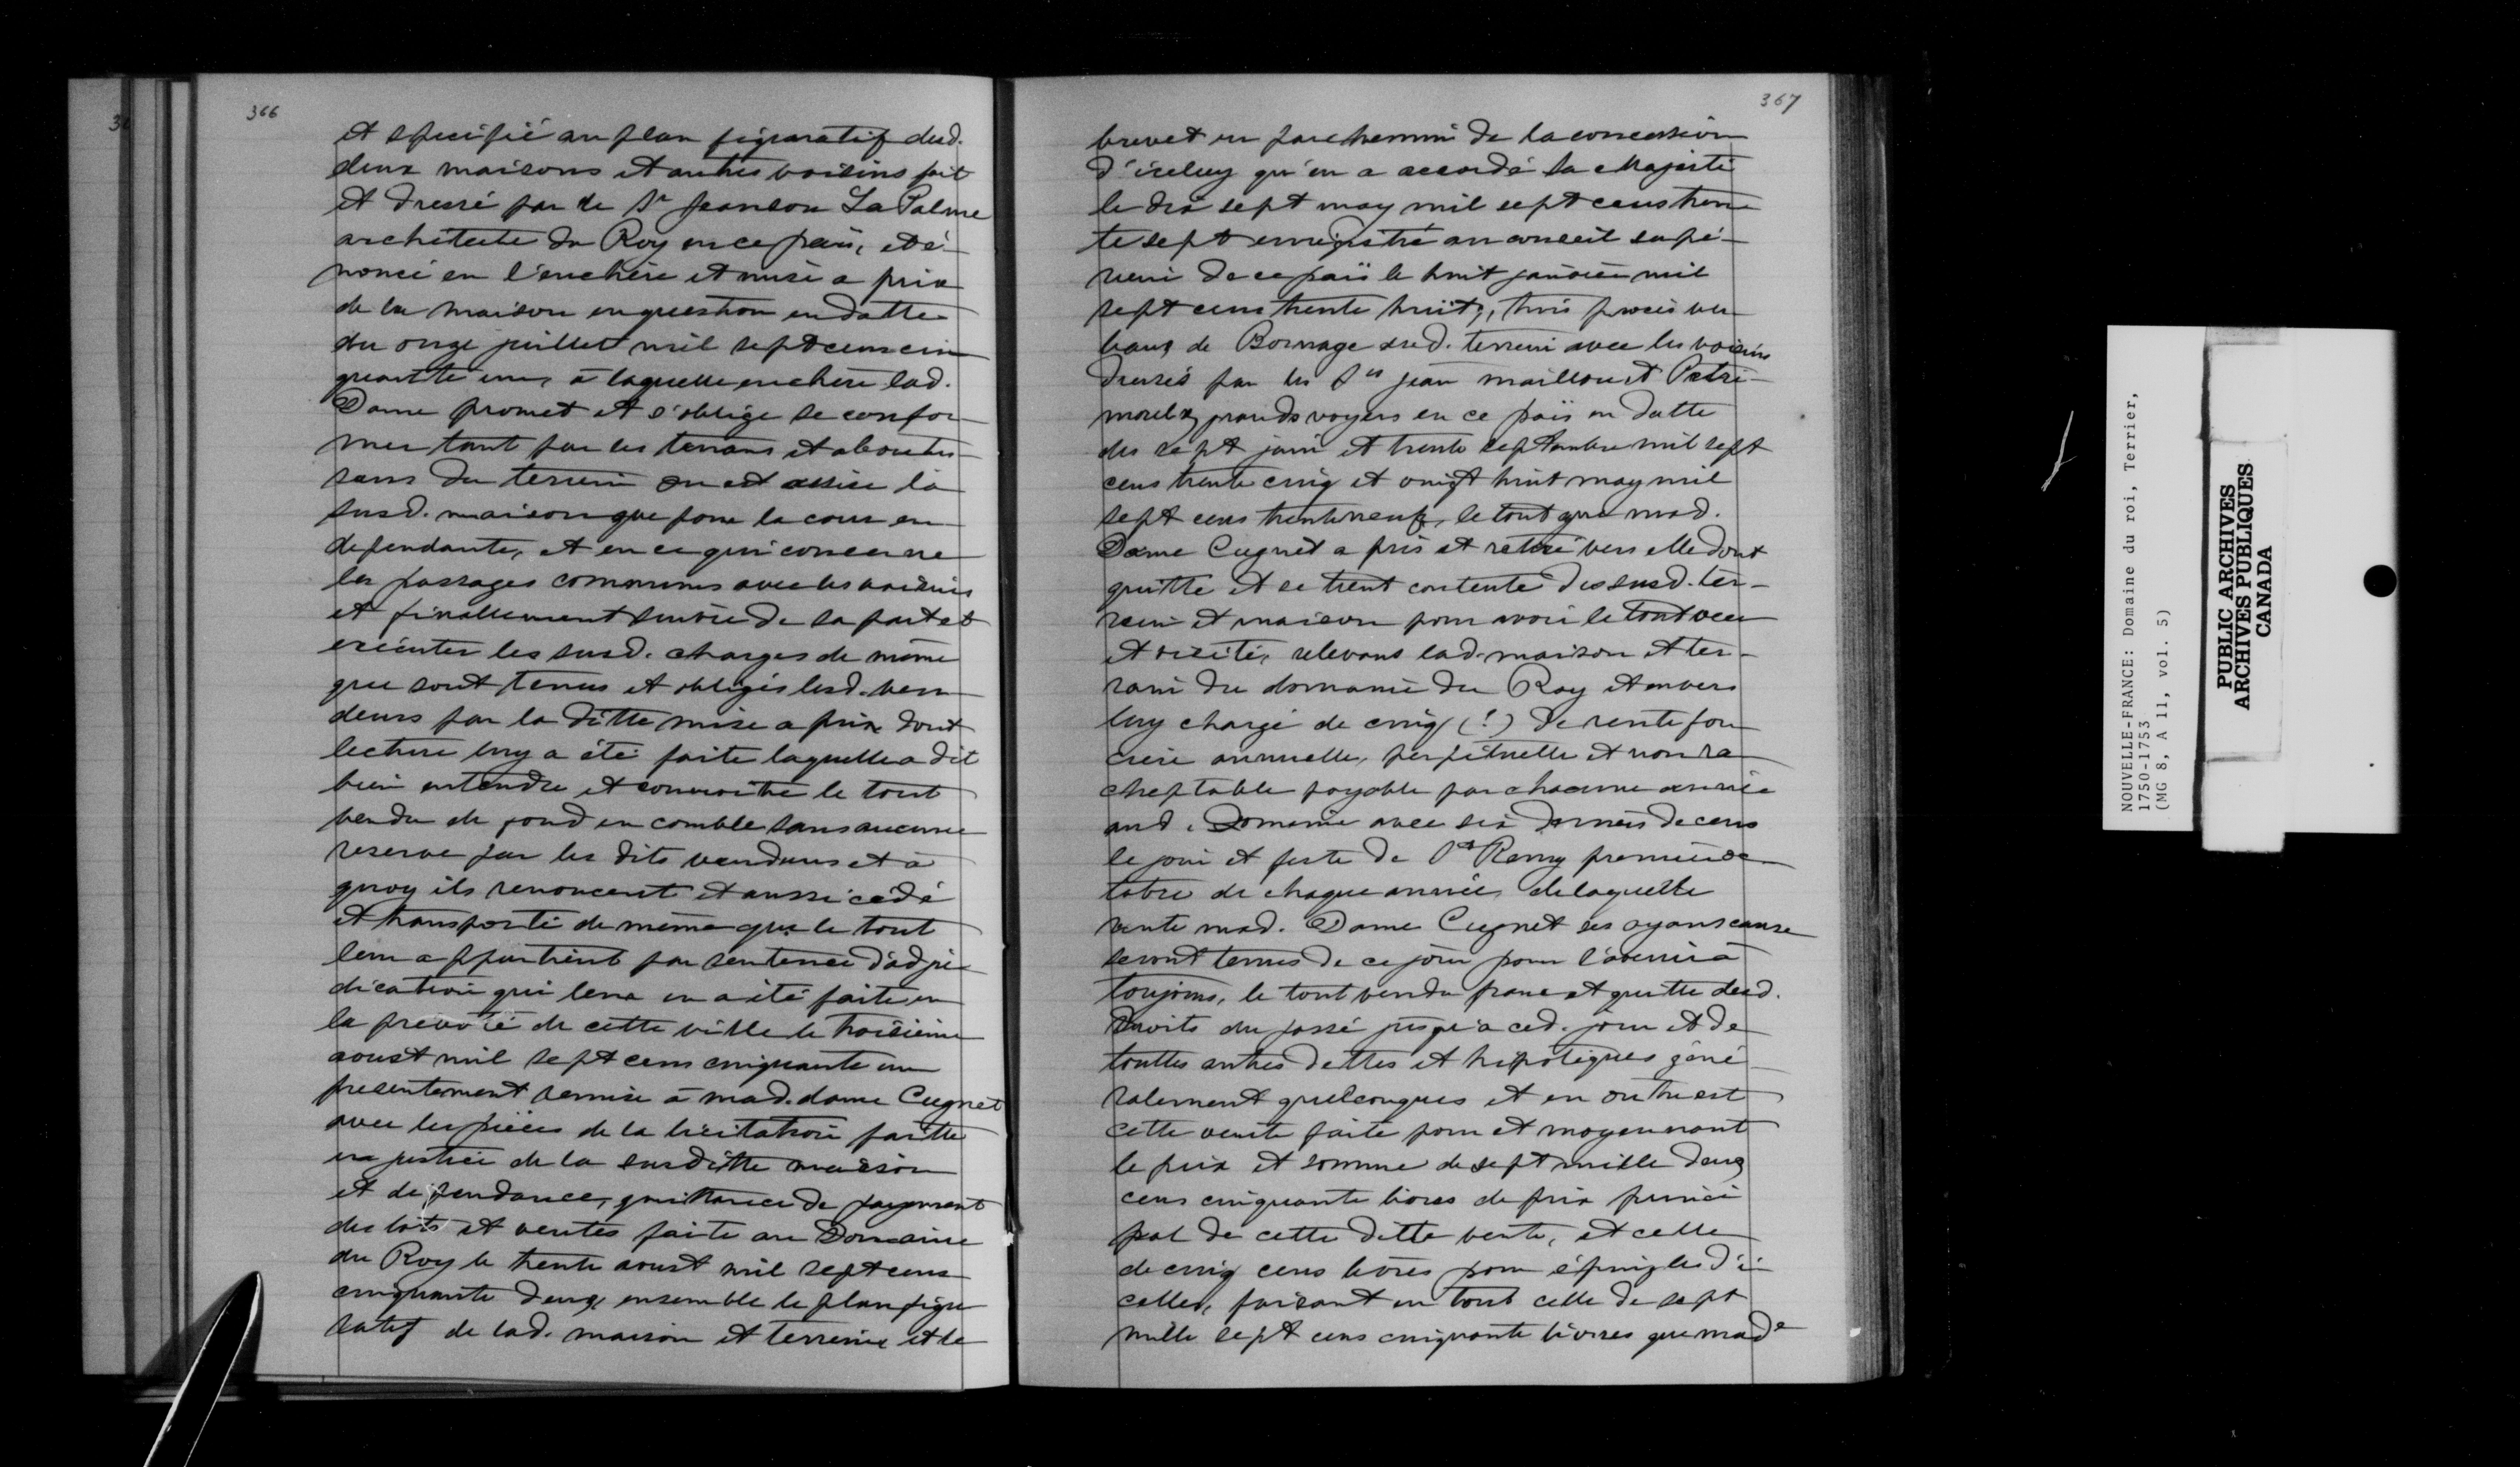 366
et specifié au plan figuratif desd.
deux maisons et autres voisins fait
et dressé par le Sr Jeanson La Palme
architecte du Roy en ce païs, et é-
noncé en l'enchère et mise a prix
de la maison en question en datte
du onze juillet mil sept cens cin
quante un, à laquelle enchère lad.
Dame promet et s'oblige se confor-
mer tant par les tenans et aboutis-
sans du terrein où est assise la
susd. maison que pour la cour en
dependante, et en ce qui concerne
les passages communs avec les voisins
et finallement suivre de sa part et
exécuter les susd. charges de même
que sont tenus et obligés lesd. ven
deurs par la ditte mise a prix dont
lecture luy a été faite laquelle a dit
bien entendre et connoitre le tout
vendu de fond en comble sans aucune
reserve par les dits vendeurs et à
quoy ils renoncent et aussi cédé
et transporté de même que le tout
leur appartient par sentence d'adju
dication qui leur en a été faite en
la prevôté de cette ville le troisième
aoust mil sept cens cinquante un
presentement remise à mad. dame Cugnet
avec les pièces de la licitation faitte
en justice de la susditte maison
et dependance, quittance de payement
des lots et ventes faite au Domaine
du Roy le trente aoust mil sept cens
cinquante deux, ensemble le plan figu
ratif de lad. maison et terrein, et le
367
brevet en parchemin de la concession
d'iceluy qu'en a accordé sa Majesté
le dix sept may mil sept cens tren
te sept enregistré au conseil supé-
rieur de ce païs le huit janvier mil
sept cens trente huit;, trois procès ver
baux de Bornage dud. terrein avec les voisins
dressés par les Srs jean maillou et Patri-
moulx, grands voyers en ce païs en datte
des sept juin et trente septembre mil sept
cens trente cinq et vingt huit may mil
sept cens trente neuf, le tout que mad.
Dame Cugnet a pris et retiré vers elle dont
quitte et se tient contente des susd. ter-
rein et maison pour avoir le tout veu
et visité, relevans lad. maison et ter-
rain du domaine du Roy et envers
luy chargé de cinq (!) de rente fon
cière annuelle, perpétuelle et non ra
cheptable payable par chacune année
aud. Domaine avec six deniers de cens
le jour et feste de St Remy premier oc
tobre de chaque année, de laquelle
rente mad. Dame Cugnet ses ayans cause
seront tenus de ce jour pour l'avenir à
toujours, le tout vendu franc et quitte desd.
Droits du passé jusqu'a ced. jour et de
touttes autres dettes et hipotèques géné-
ralement quelconques et en outre est
cette vente faite pour et moyennant
le prix et somme de sept mille deux
cens cinquante livres de prix princi
pal de cette ditte vente, et celle
de cinq cens livres pour épingles d'i-
celles, faisant en tout celle de sept
mille sept cens cinquante livres que made
NOUVELLE-FRANCE: Domaine du roi, Terrier,
1750-1753
(MG 8, A 11, vol. 5)
PUBLIC ARCHIVES
ARCHIVES PUBLIQUES
CANADA